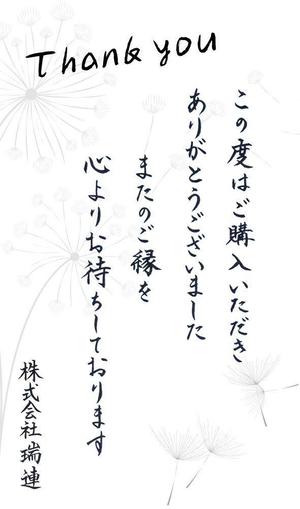 Thank you
この度はご購入いただき
ありがとうございました
またのご縁を
心よりお待ちしております
株式会社瑞連